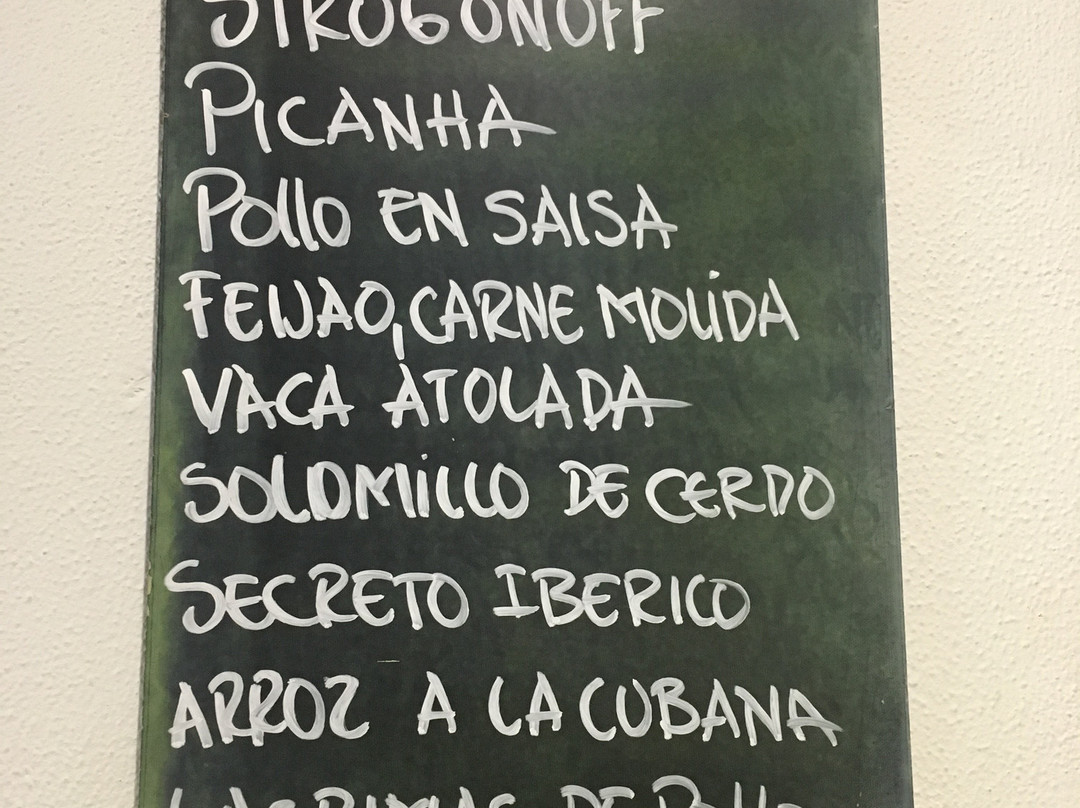 STROGONOFF
PICANHA
Pollo EN SALSA
FEIJAO, CARNE MOLIDA
VACA ATOLADA
SOLOMILLO DE CERDO
SECRETO IBERICO
ARROZ A LA CUBANA
LAGRIMAS DE Pollo